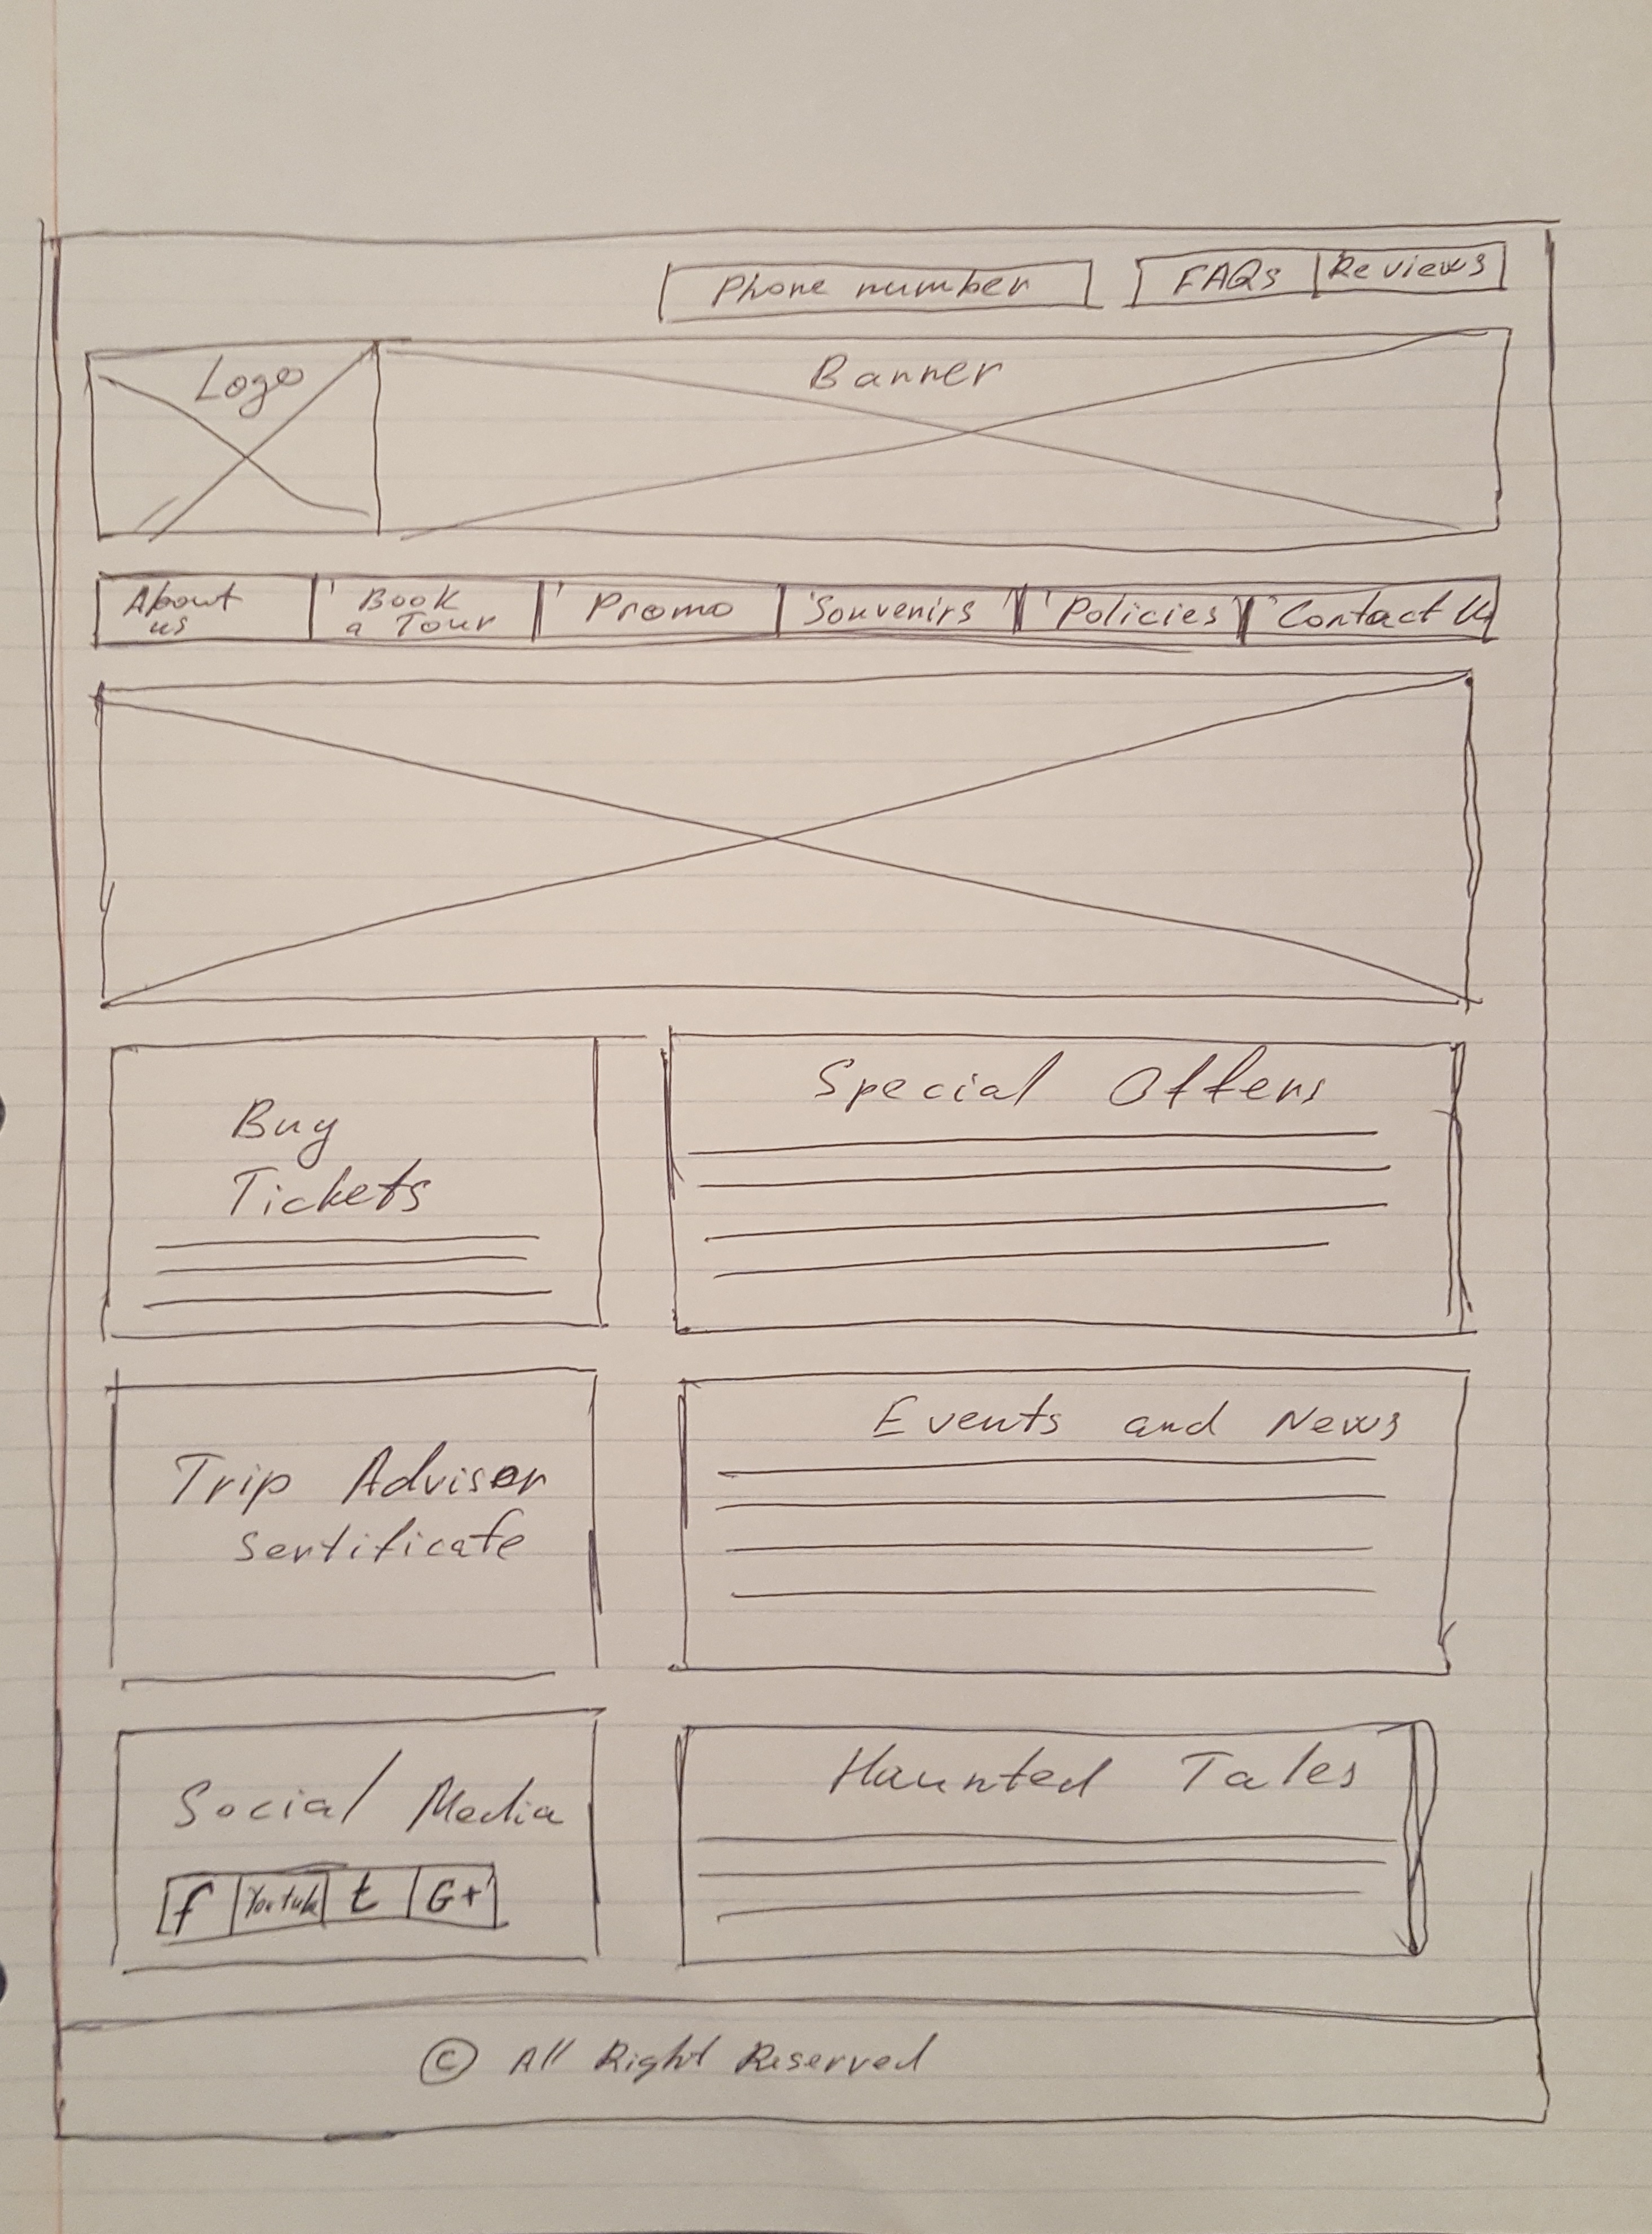 Phone number
FAQs Reviews
Logo
Banner
About us
Book a Tour
Promo
Souvenirs
Policies
Contact Us
Buy
Tickets
Special Offers
Trip Advisor
sertificate
Events and News
Social Media
f Youtube t G+
Haunted Tales
© All Right Reserved